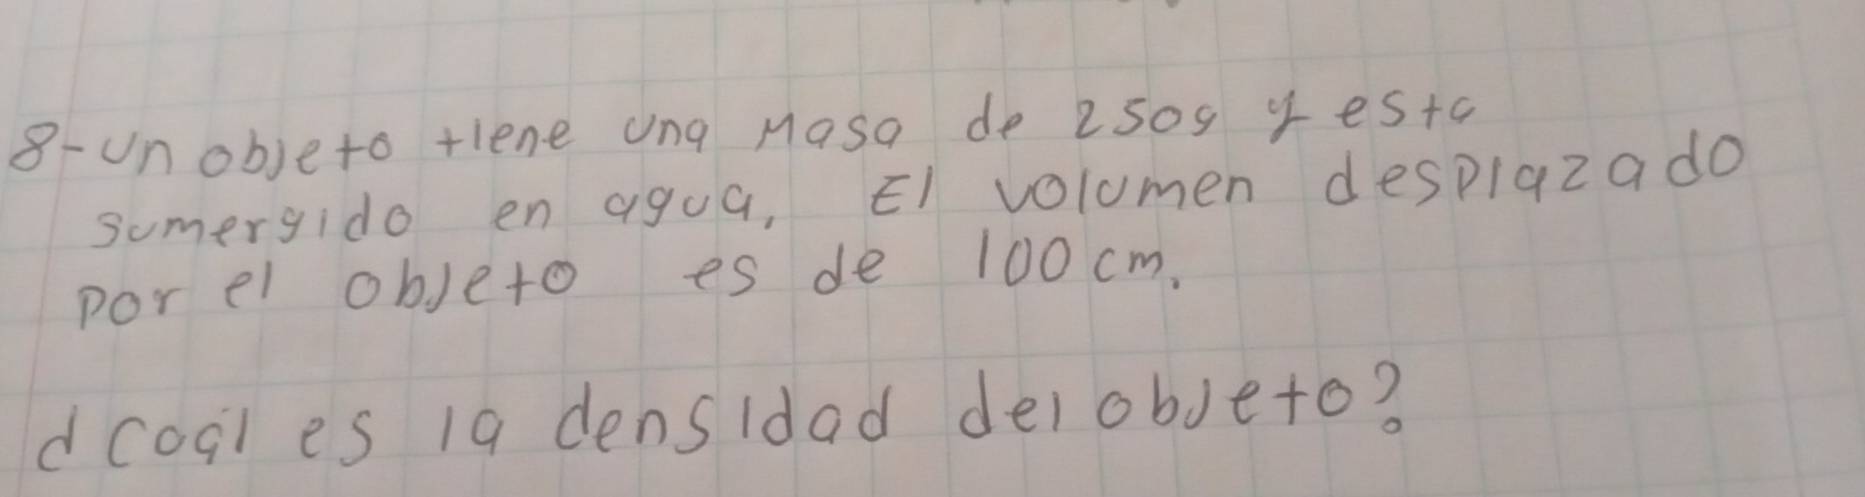 8-Un objeto tiene una Masa de 250g y esta
sumergido en agua, El volumen desplazado
por el objeto es de 100 cm.
¿Coál es la densidad del objeto?